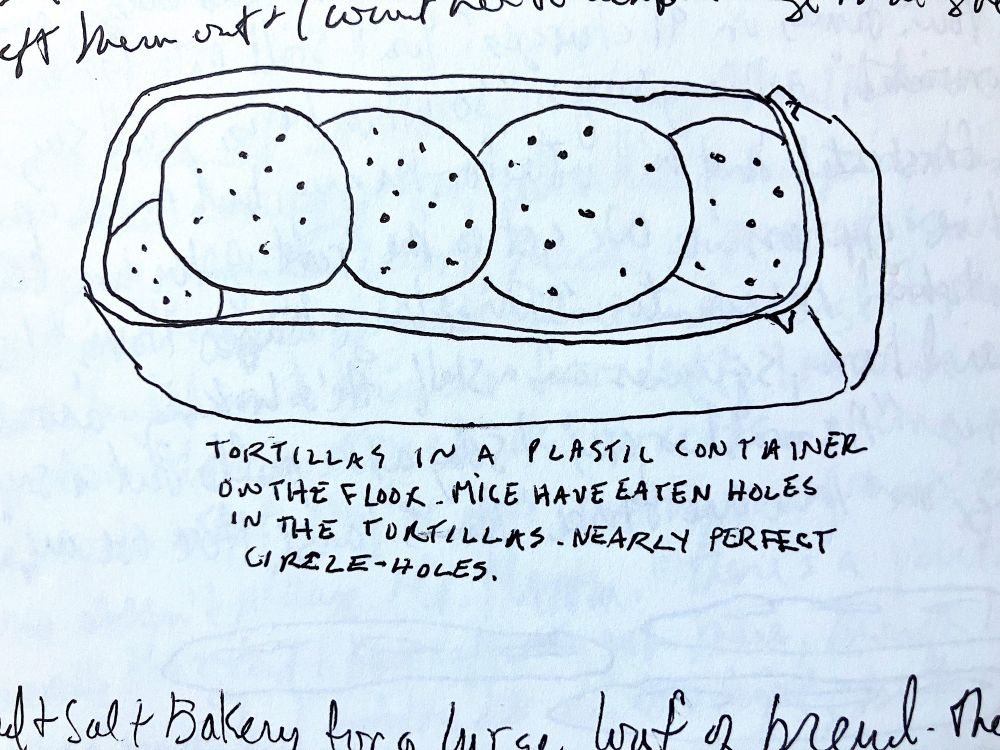 left them out & I want her to
TORTILLAS IN A PLASTIC CONTAINER
ON THE FLOOR. MICE HAVE EATEN HOLES
IN THE TORTILLAS. NEARLY PERFECT
CIRCLE-HOLES.
& Salt Bakery for a large loaf of bread. The